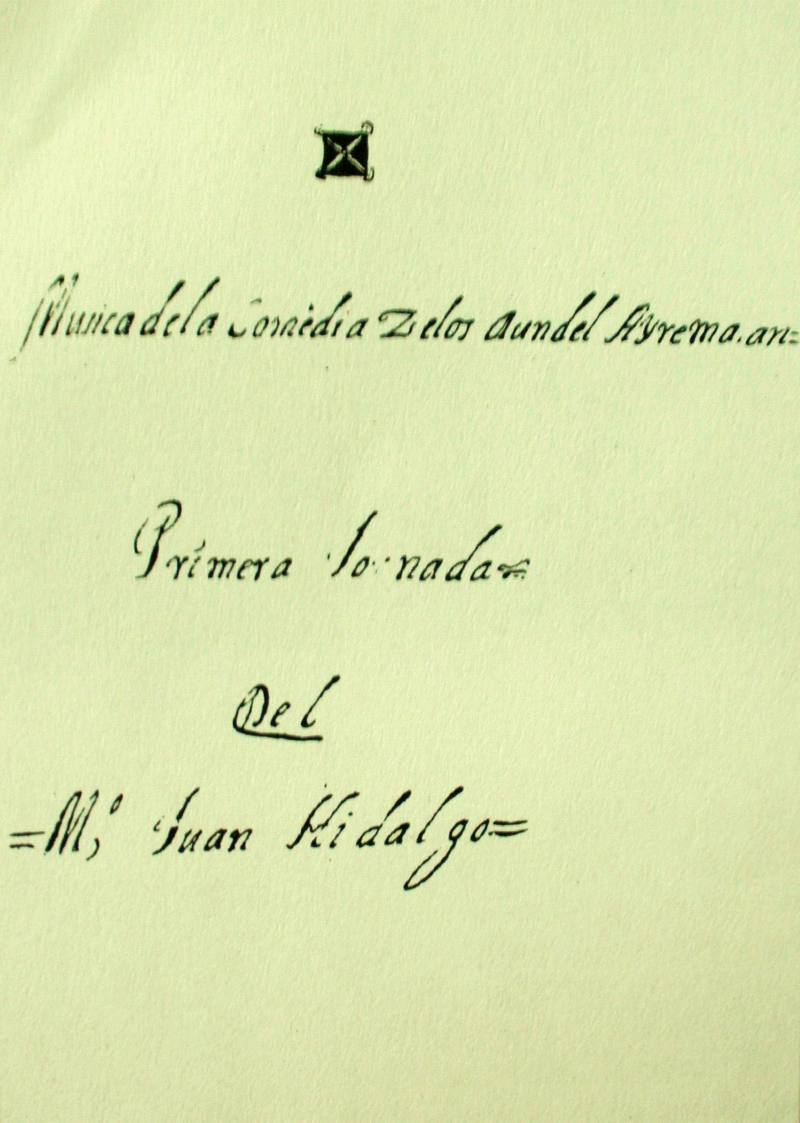 Musica de la Comedia Zelos aun del Ayre ma.an=
Primera Jornada
Del
=M.º Juan Hidalgo=